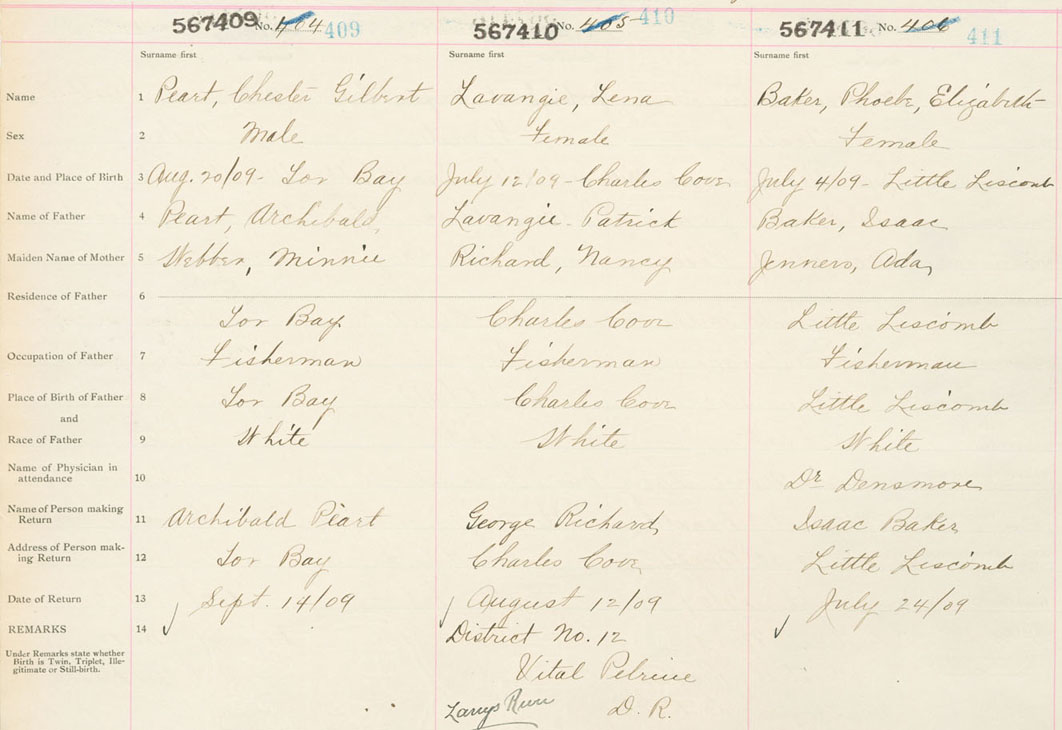 567409 No. 404 409
567410 No. 405 410
567411 No. 406 411
Surname first Surname first Surname first
Name 1 Peart, Chester Gilbert Lavangie, Lena Baker, Phoebe, Elizabeth
Sex 2 Male Female Female
Date and Place of Birth 3 Aug. 20/09 - Tor Bay July 12/09 - Charles Cove July 4/09 - Little Liscomb
Name of Father 4 Peart, Archibald, Lavangie - Patrick Baker, Isaac
Maiden Name of Mother 5 Webber, Minnie Richard, Nancy Jenners, Ada
Residence of Father 6
Tor Bay Charles Cove Little Liscomb
Occupation of Father 7 Fisherman Fisherman Fisherman
Place of Birth of Father 8 Tor Bay Charles Cove Little Liscomb
and
Race of Father 9 White White White
Name of Physician in
attendance 10 Dr Densmore
Name of Person making
Return 11 Archibald Peart George Richard Isaac Baker
Address of Person mak-
ing Return 12 Tor Bay Charles Cove Little Liscomb
Date of Return 13 Sept. 14/09 August 12/09 July 24/09
REMARKS 14 District No. 12
Under Remarks state whether
Birth is Twin, Triplet, Ille-
gitimate or Still-birth.
Vital Pelrine
Larrys River D. R.